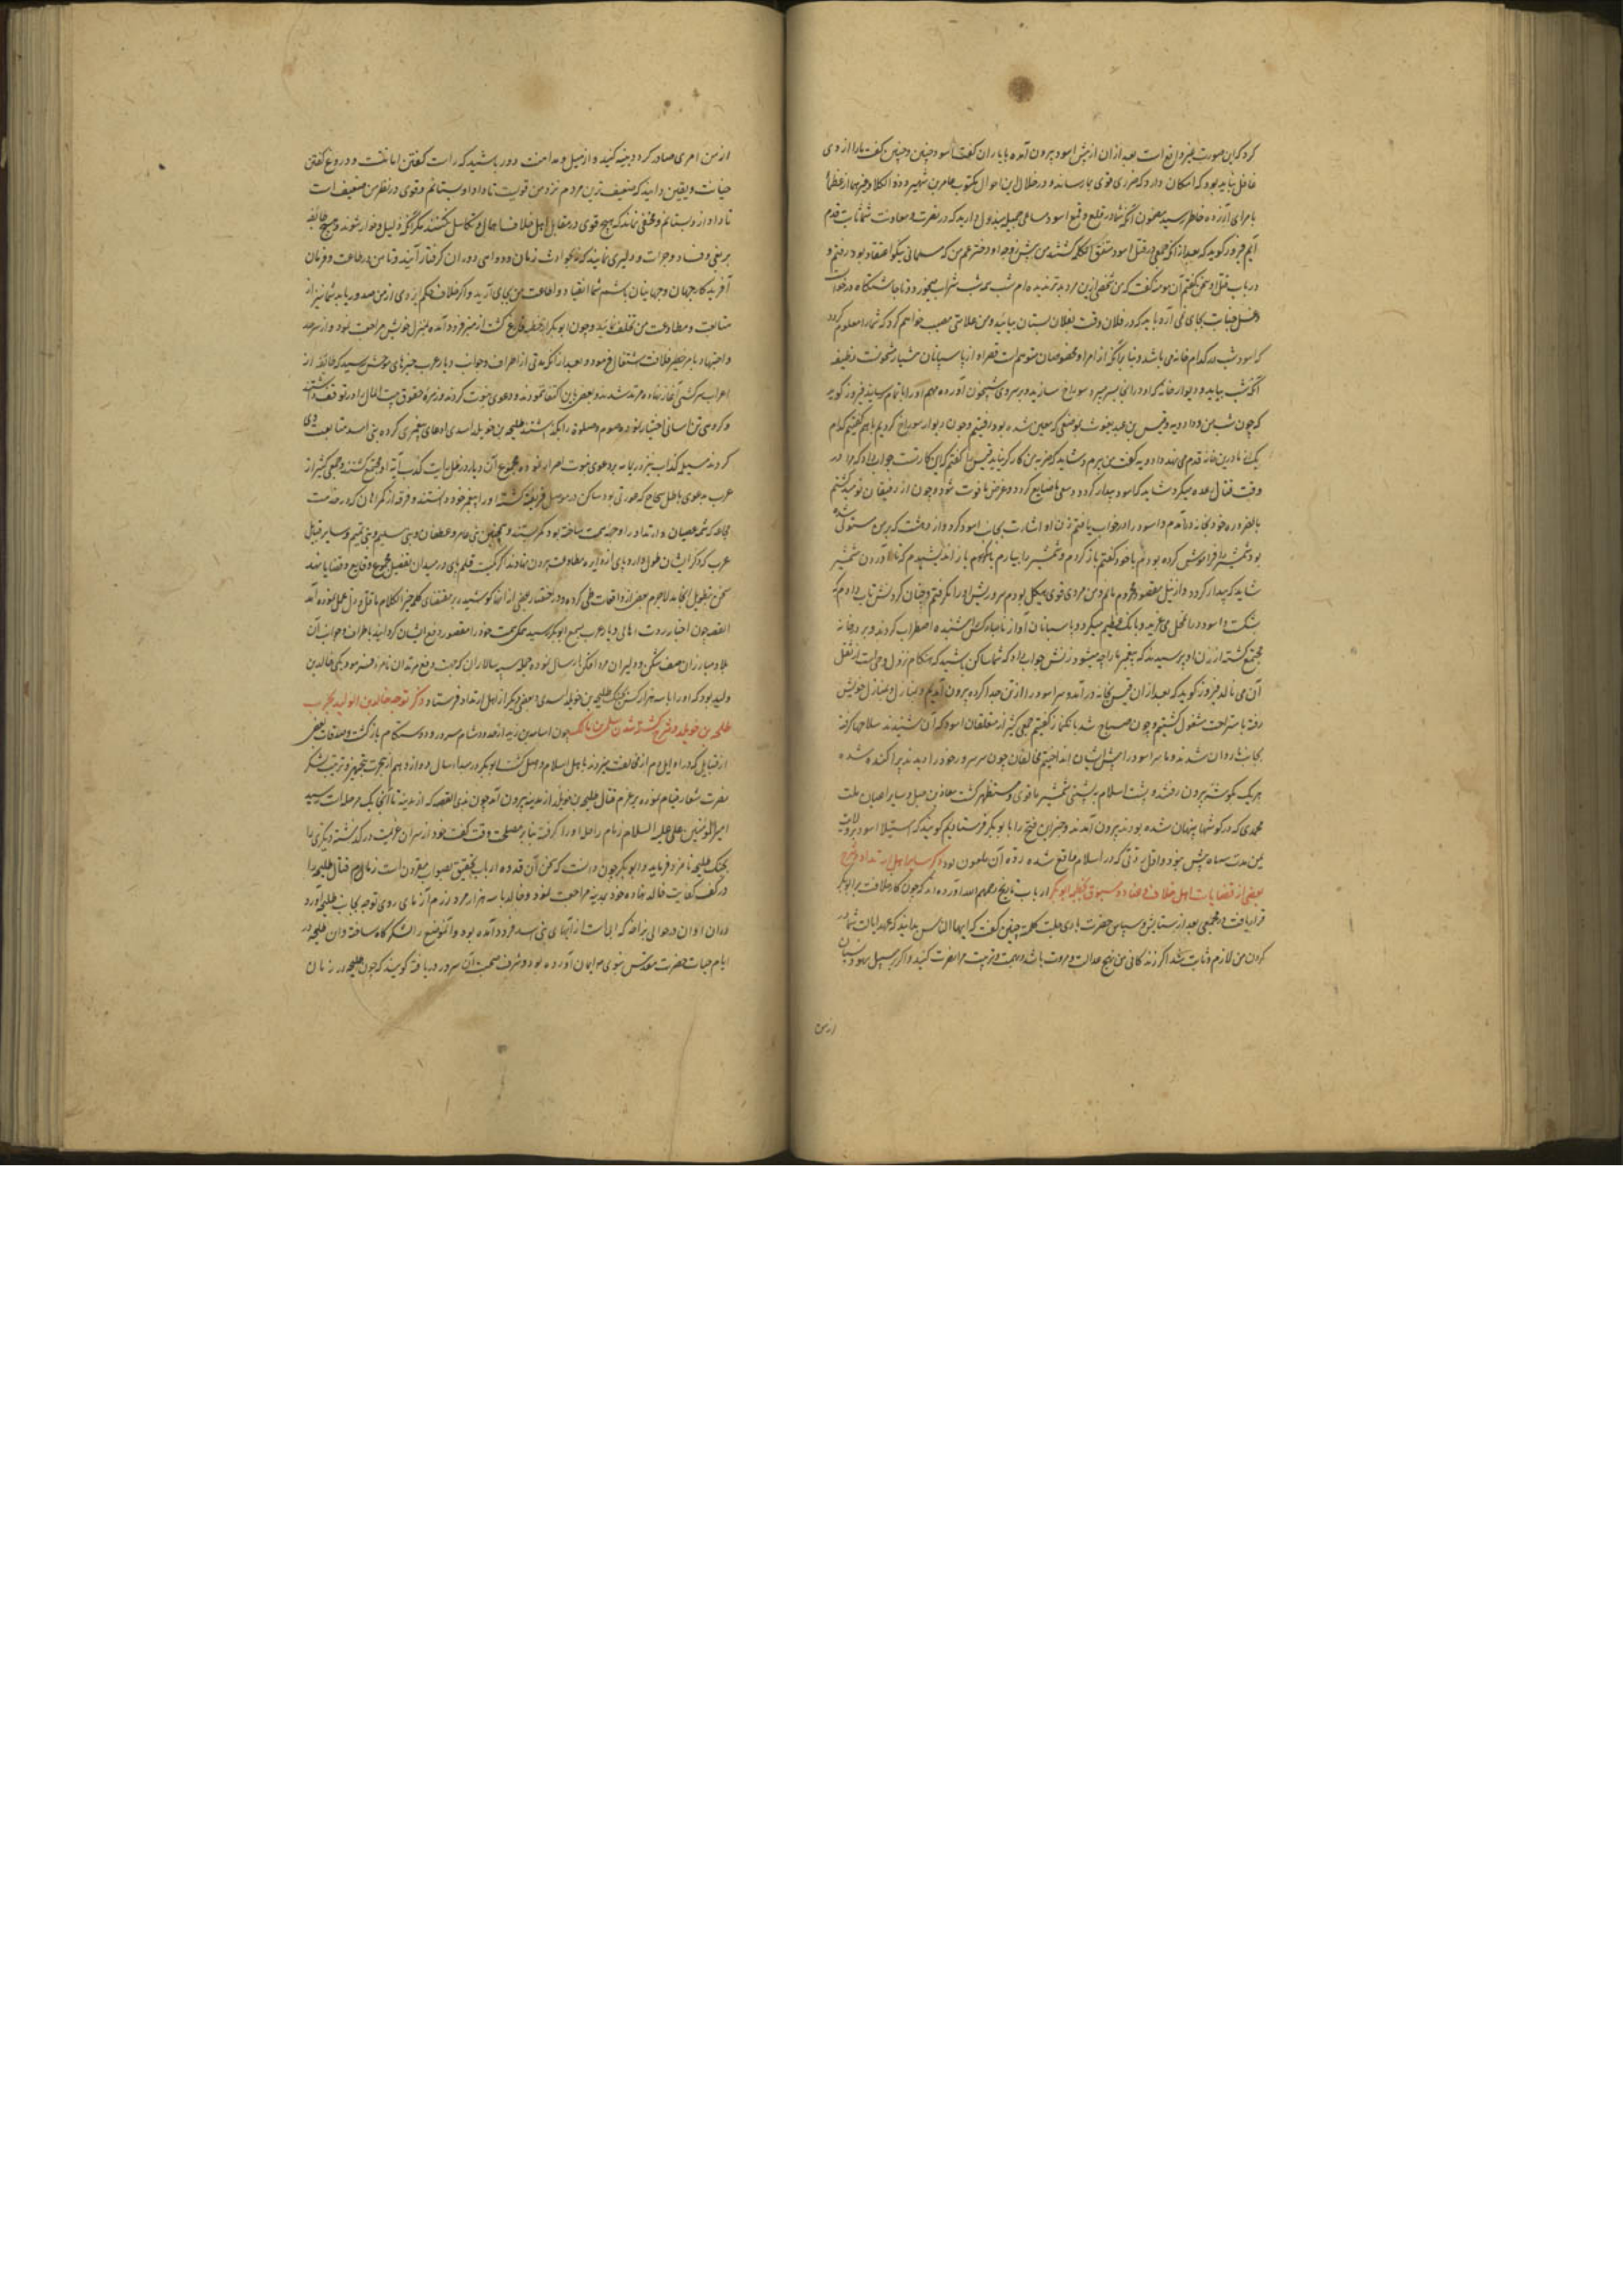 کرد که این صورت غیر واقع است بعد از ان از پیش اسود بیرون آمده با یاران گفت اسود چنین و چنین گفت ما را از وی
غافل نباید بود که امکان دارد که ضرری قوی بما رساند و در خلال این احوال مکتوب عامر بن شهر و ذو الکلاع و غیرهما از عظما
با مرای رسید مضمون انکه شما در قلع و قمع اسود مساعی جمیله مبذول دارید که در نصرت و معاونت شما ثابت قدم
آیم فیروز گوید که بعد از انکه جمعی در قتل اسود متفق الکلمه گشتند من پیش زوجه او دختر عم من که مسلمانی نیکو اعتقاد بود رفتم و
در باب قتل او سخن گفتم آن مومنه گفت که من شخصی ازین مرد بدتر ندیده ام شب همه شب شراب میخورد و تا چاشتگاه در خواب
و غسل جنابت بجای نمی آرد باید که در فلان وقت بفلان بستان بیائید و من علامتی نصب خواهم کرد که شما را معلوم گردد
که اسود شب در کدام خانه می باشد و بنا بر انکه از امرا و مخصوصان متوهم است قصر او از پاسبانان بسیار مشحونست وظیفه
آنکه شب بیایید و دیوار خانه که او در انجا بسر میبرد سوراخ سازید و بر سر وی شبیخون آورده مهم او را باتمام رسانید فیروز گوید
که چون شب من و دادویه و قیس بن عبد یغوث بموضعی که معین شده بود رفتیم و چون دیوار سوراخ کردیم باهم گفتیم کدام
یک از ما درین خانه قدم می نهد دادویه گفت من پیرم و شاید که ضربه من کارگر نیاید قیس را گفتم که این کار تست جواب داد که مرا در
وقت قتال رعده میگیرد شاید که اسود بیدار گردد و سعی ما ضایع گردد و غرض ما فوت شود و چون از رفیقان نومید گشتم
بالضروره خود بخانه درآمدم و اسود را در خواب یافتم زن او اشارت بجانب اسود کرد و از دهشت که بر من مستولی شده
بود شمشیر را فراموش کرده بودم با خود گفتم باز گردم و شمشیر را بیارم باز اندیشیدم که تا آوردن شمشیر
شاید که بیدار گردد و از نیل مقصود محروم مانم و من مردی قوی هیکل بودم سر و ریش او را بگرفتم و چنان گردنش تاب دادم که
بشکست و اسود در انحال می غرید و بانک عظیم میکرد و پاسبانان آواز نامبارکش شنیده اضطراب کردند و بر در خانه
مجتمع گشته از زن او پرسیدند که پیغمبر ما را چه میشود زنش جواب داد که شما ساکن باشید که هنگام نزول وحی است از ثقل
آن می نالد فیروز گوید که بعد از ان قیس بخانه درآمد و سر اسود را از تن جدا کرده بیرون آمدیم و بمنازل خویش
رفته باستراحت مشغول گشتیم و چون صباح شد بانک نماز گفتیم جمعی کثیر از متعلقان اسود که آن شنیدند سلاحها گرفته
بجانب ما روان شدند و ما سر اسود را پیش ایشان انداختیم مخالفان چون سر سرور خود را دیدند پراکنده شده
هر یک بگوشه بیرون رفتند و پشت اسلام به پشتی شمشیر ما قوی و مستظهر گشت معاذ بن جبل و سایر اعیان ملت
محمدی که در گوشها پنهان شده بودند بیرون آمدند و خبر این فتح را بابوبکر فرستادیم گویند که استیلا اسود بر ولایت
یمن مدت سه ماه بیش نبود و اول ردتی که در اسلام واقع شده ردت آن ملعون بود ذکر سایر اهل ارتداد و شرح
بعضی از قضایات اهل خلاف و عناد و مسبوق بخطبه ابوبکر ارباب تاریخ رحمهم الله آورده اند که چون کار خلافت بر ابوبکر
قرار یافت در مجمعی بعد از ستایش و سپاس حضرت باری جلت کلمته چنین گفت که ایها الناس بدانید که عهد ایالت شما در
گردن من لازم و ثابت شد اگر زندگانی من بر نهج عدالت و مروت باشد بهمت و تربیت مرا نصرت کنید و اگر بر سبیل سهو و نسیان
از من
از من امری صادر گردد تنبیه کنید و از میل و مداهنت دور باشید که راست گفتن امانت است و دروغ گفتن
خیانت و یقین دانید که ضعیف ترین مردم نزد من قویست تا داد او بستانم و قوی در نظر من ضعیف است
تا داد از او بستانم و مخفی نماند که هیچ قوی در مقابل اهل خلاف اهمال و تکاسل نکنند مگر انکه ذلیل و خوار شوند و هیچ طایفه
بر بغی و فساد و جرات و دلیری ننمایند که نه بحوادث زمان و دواهی دوران گرفتار آیند و تا من در طاعت و فرمان
آفریدگار جهان و جهانیان باشم شما انقیاد و اطاعت من بجای آرید و اگر خلاف حکم ایزدی از من صدور یابد شما نیز از
متابعت و مطاوعت من تخلف نمائید و چون ابوبکر از خطبه فارغ گشت از منبر فرود آمده بمنزل خویش مراجعت نمود و از سر جد
و اجتهاد بامر خطیر خلافت اشتغال فرمود و بعد از انکه مدتی از اطراف و جوانب دیار عرب خبرهای موحش رسید که طایفه از
اعراب سرکشی آغاز نهاده مرتد شدند و بعضی باین اکتفا ننمودند و دعوی نبوت کردند و زمره حقوق بیت المال را در توقف داشتند
و گروهی تن اسانی اختیار نموده صوم و صلوة را بگذاشتند طلیحه بن خویلد اسدی ادعای پیغمبری کرده بنی اسد متابعت وی
کردند مسیلمه کذاب نیز در یمامه بر دعوی نبوت اصرار نموده مجموع آن دیار در ظل رایات کذب آیة او مجتمع گشتند و جمعی کثیر از
عرب بدعوی باطل سجاح که عورتی بود ساکن در موصل فریفته گشته او را پیغمبر خود دانستند و فرقه از گمراهان که در خدمت
عرب که ذکر ایشان طول دارد پای از دایره مطاوعت بیرون نهادند اگر کمیت قلم پای در میدان تفصیل مجموع وقایع و قضایا نهد
سخن بتطویل انجامد لاجرم بعضی از واقعات طی کرده و در اختصار بعضی از ان کوشیده بر مقتضای کلمه خیر الکلام ما قل و دل عمل نموده آمد
القصه چون اخبار ردت اهالی دیار عرب بسمع ابوبکر رسید همگی همت خود را مقصور دفع ایشان گردانید باطراف و جوانب آن
بلاد مبارزان صف شکن و دلیران مرد افکن ارسال نموده جمله سپه سالاران که جهت دفع مرتدان نامزد فرمود یکی خالد بن
ولید بود که او را با سه هزار کس بجنگ طلیحه بن خویلد اسدی و بعضی دیگر از اهل ارتداد فرستاد ذکر توجه خالد بن الولید بحرب
طلیحه بن خویلد و شرح کشته شدن مالک چون اسامه بن زید از حدود شام مسرور و دوستکام بازگشت و صدقات بعضی
از قبایل که در اوایل دم از مخالفت میزدند باهل اسلام واصل گشت ابوبکر در مبداء سال دوازدهم از هجرت بتجهیز و ترتیب لشکر
نصرت شعار قیام نموده بر عزم قتال طلیحه بن خویلد از مدینه بیرون آمد چون بذی القصه که از مدینه تا انجا یک مرحله است رسید
امیر المومنین علی علیه السلام زمام راحله او را گرفته بنابر مصلحت وقت گفت خود از سر این عزیمت درگذشته دیگری را
بجنگ طلیحه نامزد فرماید و ابوبکر چون دانست که سخن آن قدوه ارباب تحقیق بصواب مقرونست زمام مهام قتال طلیحه را
در کف کفایت خالد نهاده خود بمدینه مراجعت نمود و خالد با سه هزار مرد رزم آزمای روی توجه بجانب طلیحه آورد
و دران اوان در حوالی بزاخه که ابی است از آبهای بنی اسد فرود آمده بود و آنموضع را لشکرگاه ساخته و ان طلیحه در
ایام حیات حضرت مقدس نبوی ایمان آورده بود و شرف صحبت آن سرور دریافته گویند که چون طلیحه در زمان